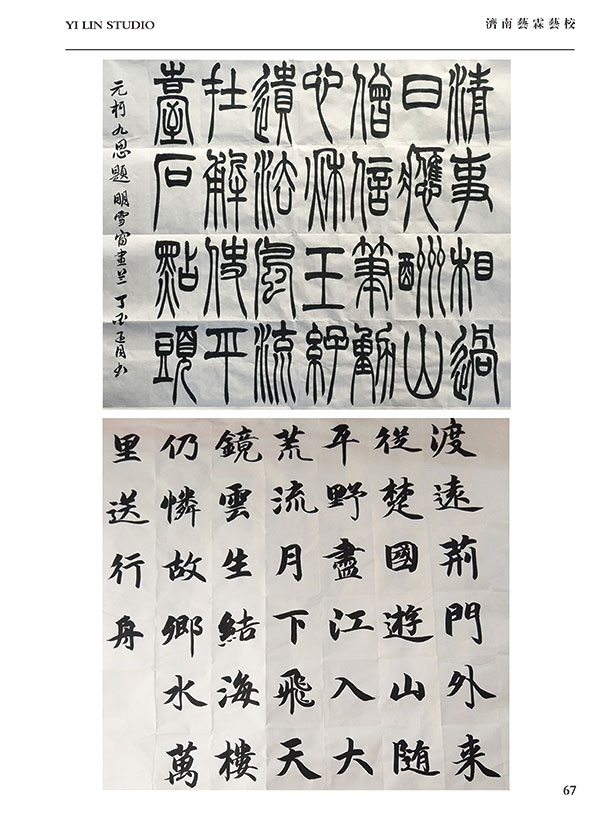 YI LIN STUDIO
濟南藝霖藝校
清事相過
日應酬山
僧信筆動
秌王
遺法風流
在解使平
臺石點頭
元柯九思題明雪窗畫兰丁酉月书
渡遠荊門外来
從楚國遊山随
平野盡江入大
荒流月下飛天
鏡雲生結海樓
仍憐故鄉水萬
里送行舟
67